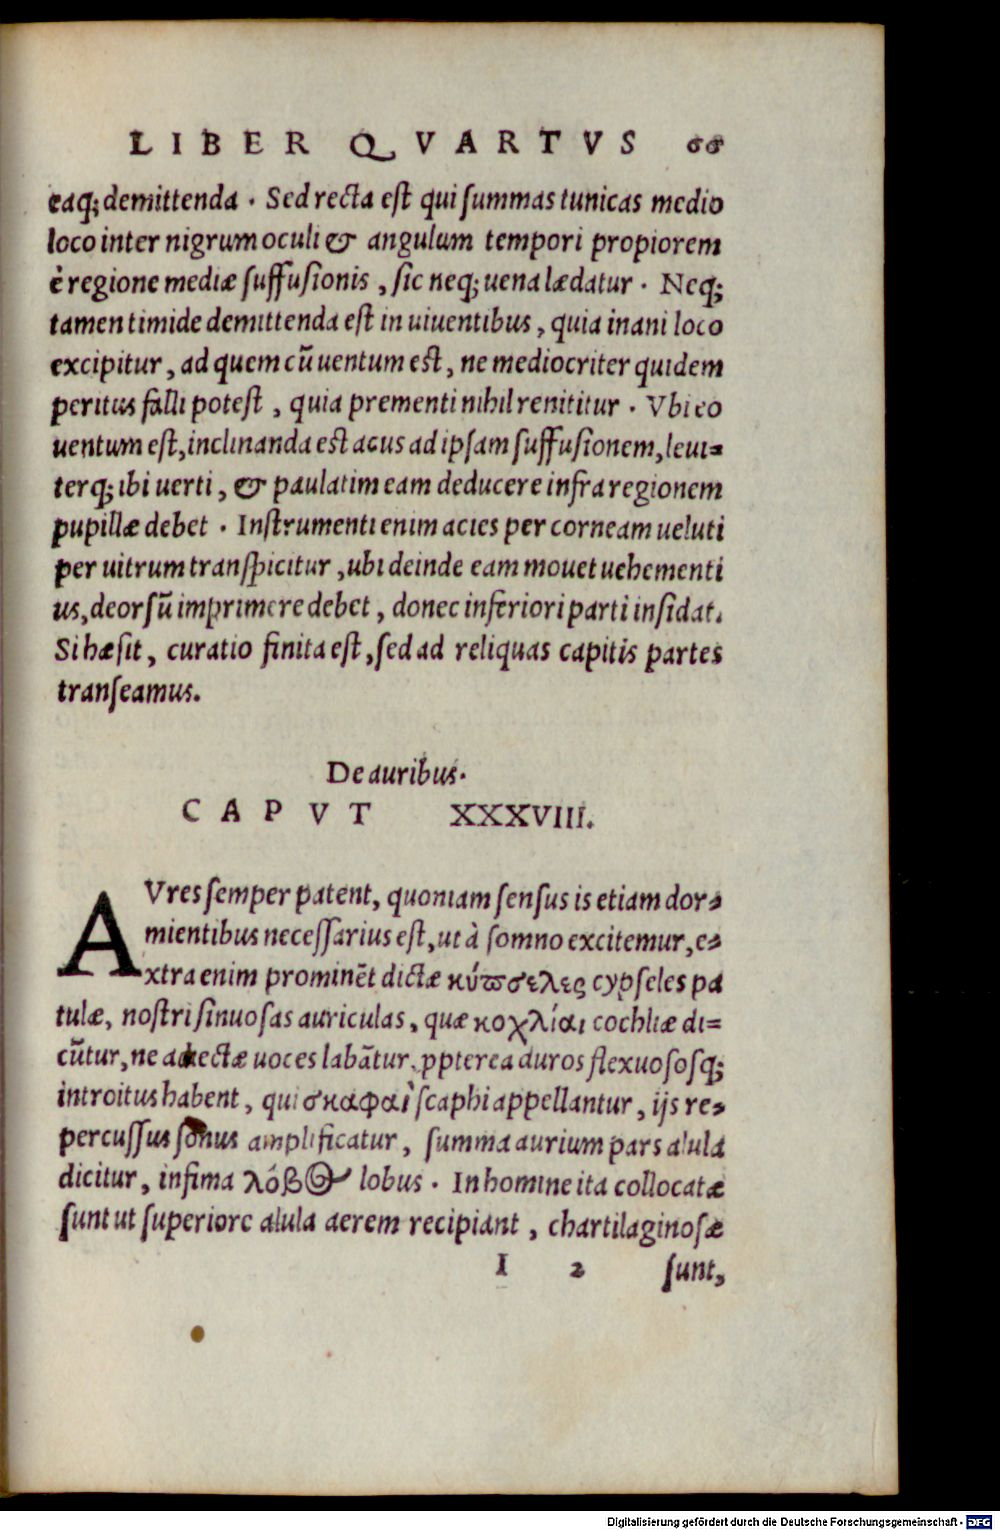 LIBER QVARTVS 66
eaq; demittenda . Sed recta est qui summas tunicas medio
loco inter nigrum oculi & angulum tempori propiorem
è regione mediæ suffusionis , sic neq; uena lædatur . Neq;
tamen timide demittenda est in uiuentibus , quia inani loco
excipitur , ad quem cũ uentum est , ne mediocriter quidem
peritus falli potest , quia prementi nihil renititur . Vbi eo
uentum est, inclinanda est acus ad ipsam suffusionem, leui=
terq; ibi uerti , & paulatim eam deducere infra regionem
pupillæ debet . Instrumenti enim acies per corneam ueluti
per uitrum transpicitur , ubi deinde eam mouet uehementi
us, deorsũ imprimere debet , donec inferiori parti insidat.
Si hæsit , curatio finita est , sed ad reliquas capitis partes
transeamus.
De auribus.
CAPVT XXXVIII.
AVres semper patent, quoniam sensus is etiam dor=
mientibus necessarius est, ut à somno excitemur, e=
xtra enim prominẽt dictæ κύϖσελες cypseles pa
tulæ, nostri sinuosas auriculas , quæ κοχλίαι cochliæ di=
cũtur, ne adiectæ uoces labãtur, ꝓpterea duros flexuososq;
introitus habent , qui σκαφαὶ scaphi appellantur , ijs re=
percussus sonus amplificatur , summa aurium pars alula
dicitur , infima λόβος lobus . In homine ita collocatæ
sunt ut superiore alula aerem recipiant , chartilaginosæ
I 2 sunt,
Digitalisierung gefördert durch die Deutsche Forschungsgemeinschaft - DFG